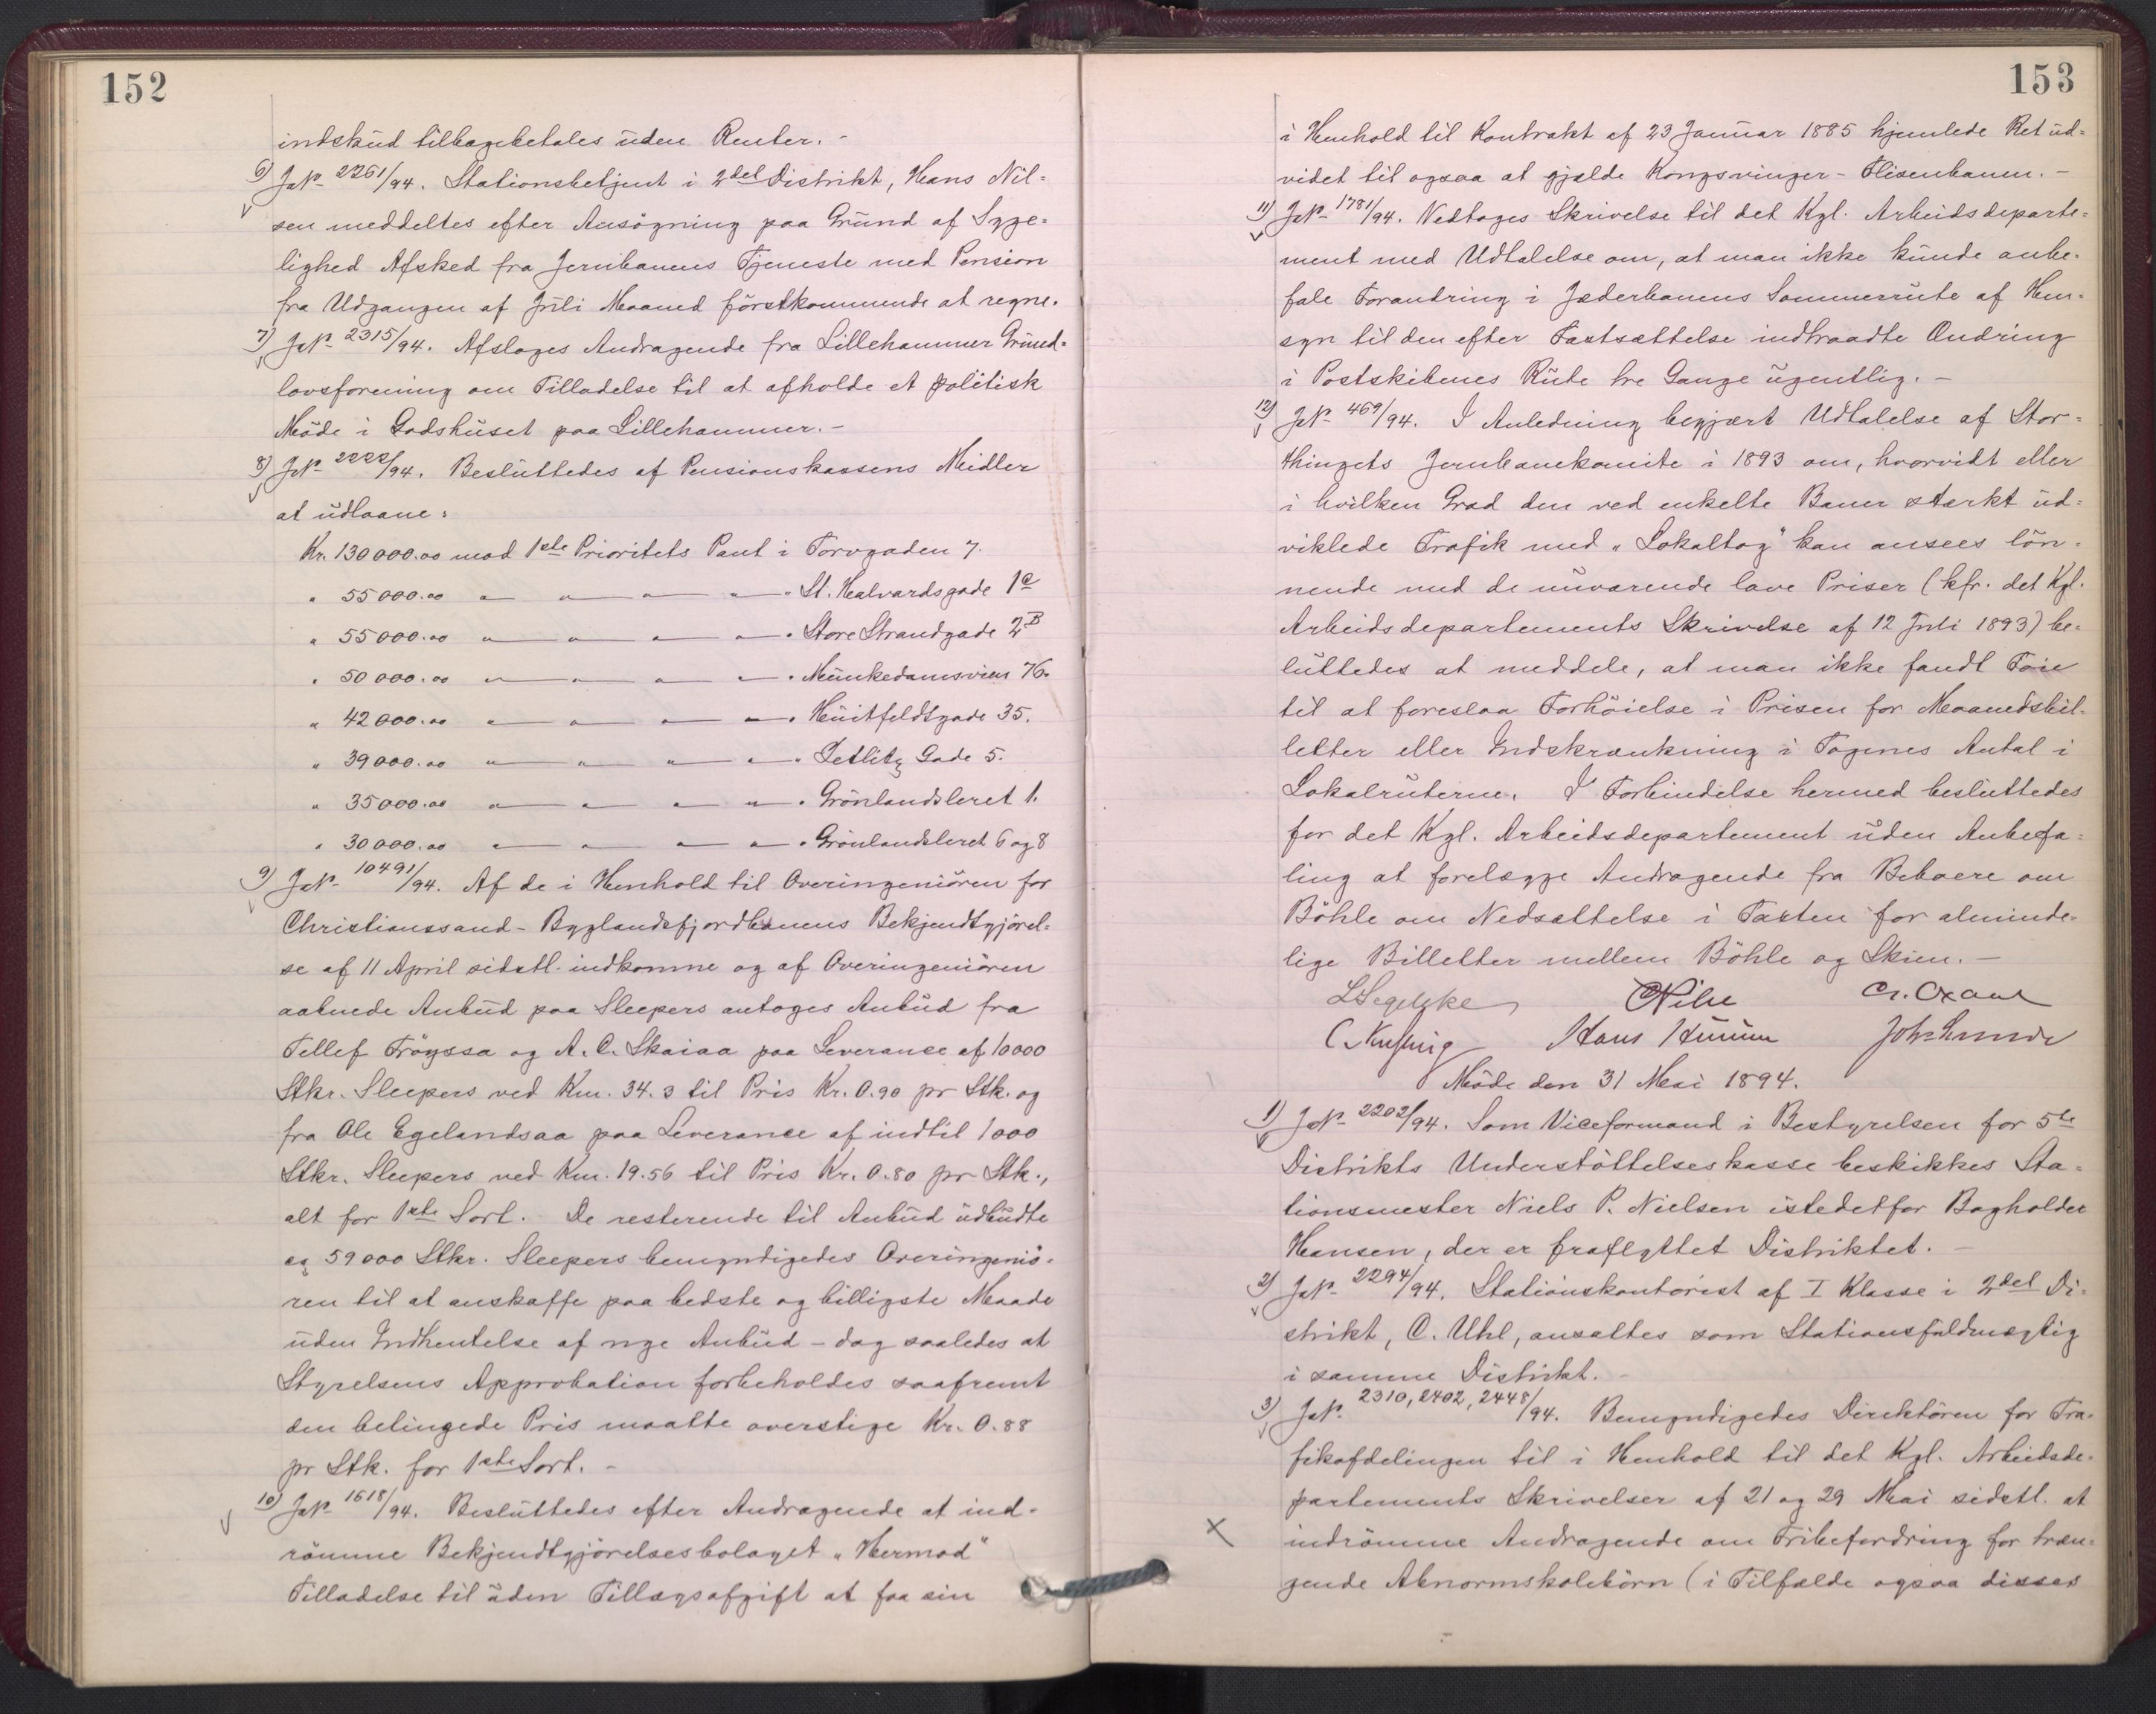 152
indskud tilbagebetales uden Renter. -
6) JNo 2261/94. Stationsbetjent i 2del Distrikt, Hans Nil=
sen meddeltes efter Ansögning paa Grund af Syge=
lighed Afsked fra Jernbanens Tjeneste med Pension
fra Udgangen af Juli Maaned förstkommende at regne.
7) JNo 2315/94. Afsloges Andragende fra Lillehammer Grund=
lovsforening om Tilladelse til at afholde et politisk
Möde i Godshuset paa Lillehammer. -
8) JNo 2222/94. Besluttedes af Pensionskassens Midler
at udlaane:
Kr. 130 000.00 mod 1ste Prioritets Pant i Torvgaden 7.
" 55 000.00 " — " — " — " — " St. Halvardsgade 1c
" 55 000.00 " — " — " — " — " Store Strandgade 2B
" 50 000.00 " — " — " — " — " Munkedamsveien 76.
" 42 000.00 " — " — " — " — " Huitfeldtgade 35.
" 39 000.00 " — " — " — " — " Tetlitz Gade 5.
" 35 000.00 " — " — " — " — " Grönlandsleret 1.
" 30 000.00 " — " — " — " — " Grönlandsleret 6 og 8
9) JNo 10491/94. Af de i Henhold til Overingeniören for
Christianssand - Byglandsfjordbanens Bekjendtgjörel=
se af 11 April sidstl. indkomne og af Overingeniören
aabnede Anbud paa Sleepers antoges Anbud fra
Tellef Tröyssa og A. C. Skaiaa paa Leverance af 10000
Stkr. Sleepers ved Km. 34.3 til Pris Kr. 0.90 pr Stk. og
fra Ole Egelandsaa paa Leverance af indtil 1000
Stkr. Sleepers ved Km. 19.56 til Pris Kr. 0.80 pr Stk.,
alt for 1ste Sort. De resterende til Anbud udbudte
ca 59000 Stkr. Sleepers bemyndigedes Overingeniö=
ren til at anskaffe paa bedste og billigste Maade
uden Indhentelse af nye Anbud - dog saaledes at
Styrelsens Approbation forbeholdes saafremt
den betingede Pris maatte overstige Kr. 0.88
pr Stk. for 1ste Sort. -
10) JNo 1618/94. Besluttedes efter Andragende at ind=
römme Bekjendtgjörelsesbolaget „Hermod"
Tilladelse til uden Tillægsafgift at faa sin
153
i Henhold til Kontrakt af 23 Januar 1885 hjemlede Ret ud=
videt til ogsaa at gjælde Kongsvinger - Flisenbanen. -
11) JNo 1781/94. Vedtoges Skrivelse til det Kgl. Arbeidsdeparte=
ment med Udtalelse om, at man ikke kunde anbe=
fale Forandring i Jæderbanens Sommerrute af Hen=
syn til den efter Fastsættelse indtraadte Ændring
i Postskibenes Rute tre Gange ugentlig. -
12) JNo 469/94. I Anledning begjært Udtalelse af Stor=
thingets Jernbanekomite i 1893 om, hvorvidt eller
i hvilken Grad den ved enkelte Baner stærkt ud=
viklede Trafik med „Lokaltog" kan ansees lön=
nende med de nuværende lave Priser (kfr. det Kgl.
Arbeidsdepartements Skrivelse af 12 Juli 1893) be=
luttedes at meddele, at man ikke fandt Föie
til at foreslaa Forhöielse i Prisen for Maanedsbil=
letter eller Indskrænkning i Togenes Antal i
Lokalruterne. I Forbindelse hermed besluttedes
for det Kgl. Arbeidsdepartement uden Anbefa=
ling at forelægge Andragende fra Beboere om
Böhle om Nedsættelse i Taxten for alminde=
lige Billetter mellem Böhle og Skien. -
Hans
Möde den 31 Mai 1894.
1) JNo 2202/94. Som Viceformand i Bestyrelsen for 5te
Distrikts Understöttelseskasse beskikkes Sta=
tionsmester Niels P. Nielsen istedetfor Bogholder
Hansen, der er fraflyttet Distriktet. -
2) JNo 2294/94. Stationskontorist af I Klasse i 2det Di=
strikt, C. Uhl, ansættes som Stationsfuldmægtig
i samme Distrikt. -
3) JNo 2310, 2402, 2448/94. Bemyndigedes Direktören for Tra=
fikafdelingen til i Henhold til det Kgl. Arbeidsde=
partements Skrivelser af 21 og 29 Mai sidstl. at
indrömme Andragende om Fribefordring for træn=
gende Abnormskolebörn (i Tilfælde ogsaa disses